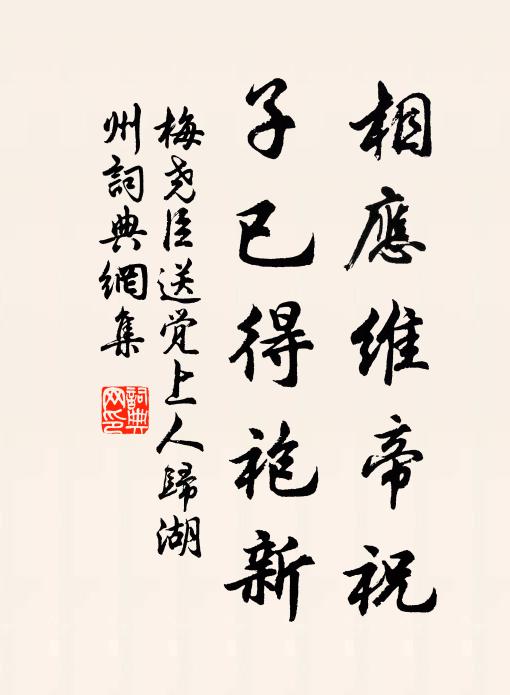 相應維帝祝
子已得袍新
梅尧臣送觉上人歸湖
州詞典網集
詞典
网印